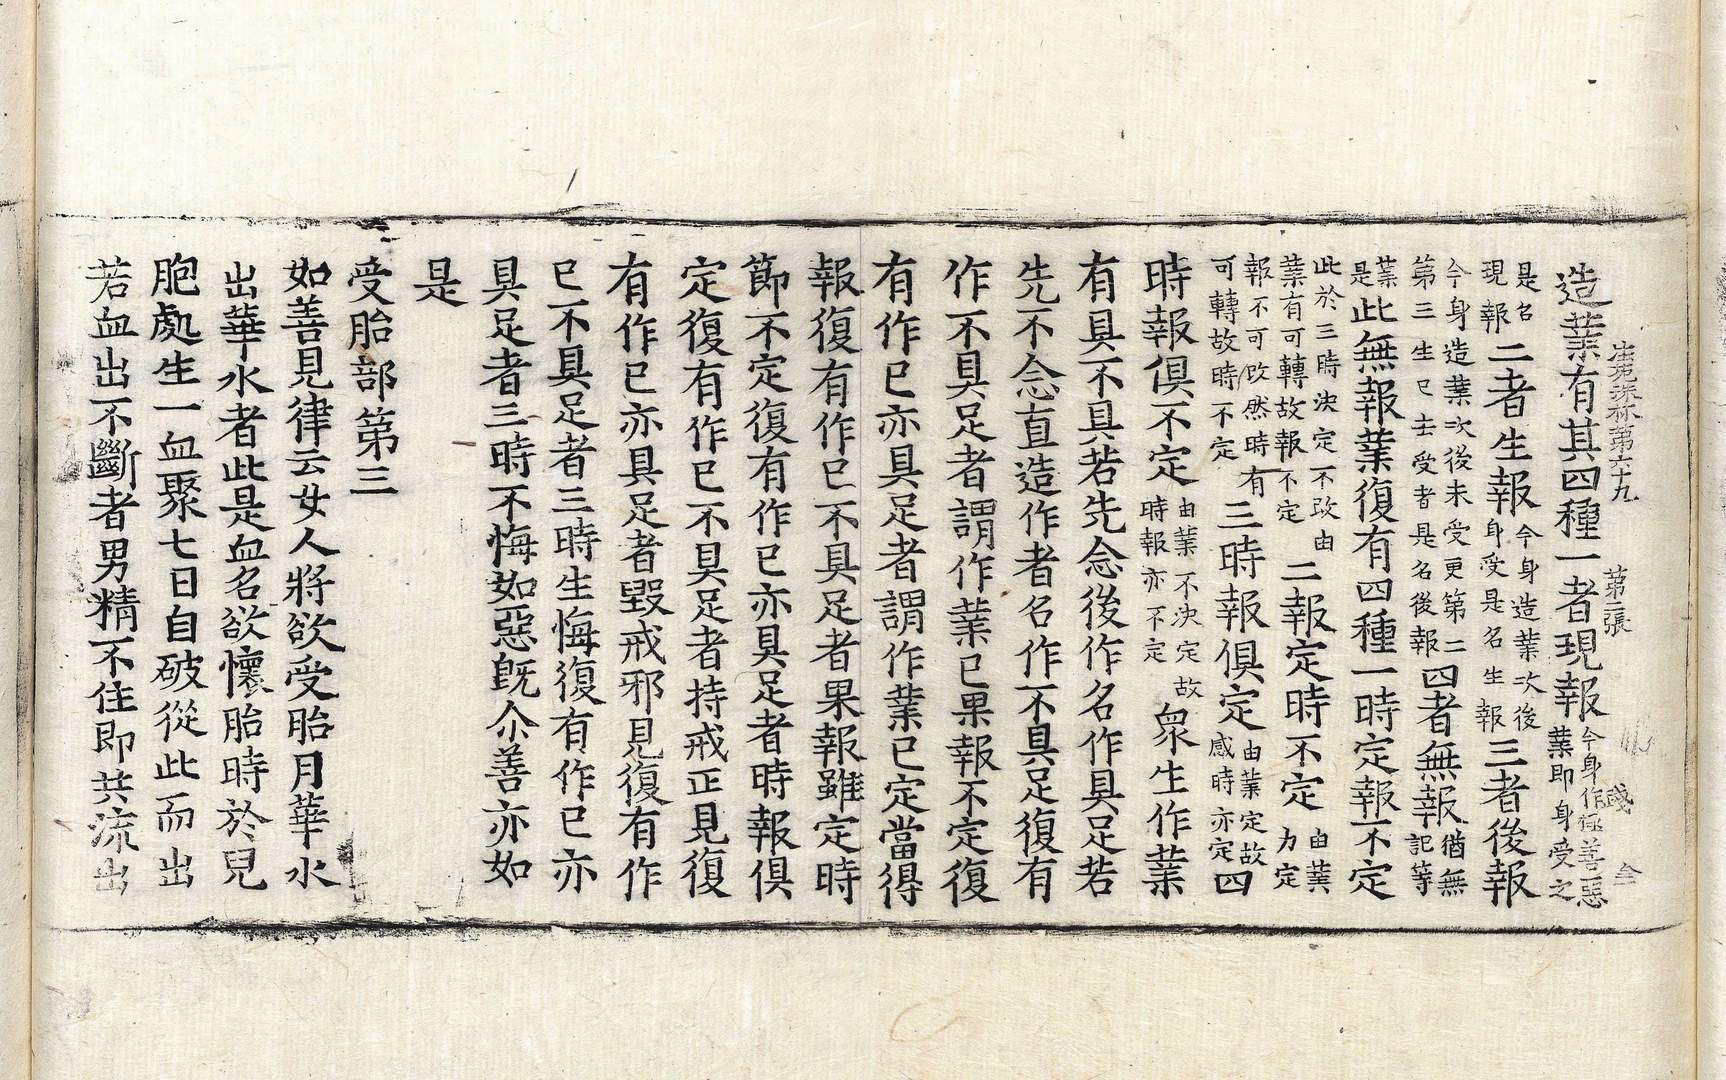 法苑珠林第六十九　第二張　　　　전
造業有其四種一者現報今身作極善惡業即身受之
是名現報二者生報今身造業次後身受是名生報三者後報
今身造業次後未受更第二第三生已去受者是名後報四者無報猶無記等
業是此無報業復有四種一時定報不定
此於三時決定不改由業有可轉故報不定二報定時不定由業力定
報不可改然時有可轉故時不定三時報俱定由業定故感時亦定四
時報俱不定由業不決定故時報亦不定眾生作業
有具不具若先念後作名作具足若
先不念直造作者名作不具足復有
作不具足者謂作業已果報不定復
有作已亦具足者謂作業已定當得
報復有作已不具足者果報雖定時
節不定復有作已亦具足者時報俱
定復有作已不具足者持戒正見復
有作已亦具足者毀戒邪見復有作
已不具足者三時生悔復有作已亦
具足者三時不悔如惡既尒善亦如
是
受胎部第三
如善見律云女人將欲受胎月華水
出華水者此是血名欲懷胎時於兒
胞處生一血聚七日自破從此而出
若血出不斷者男精不住即共流出